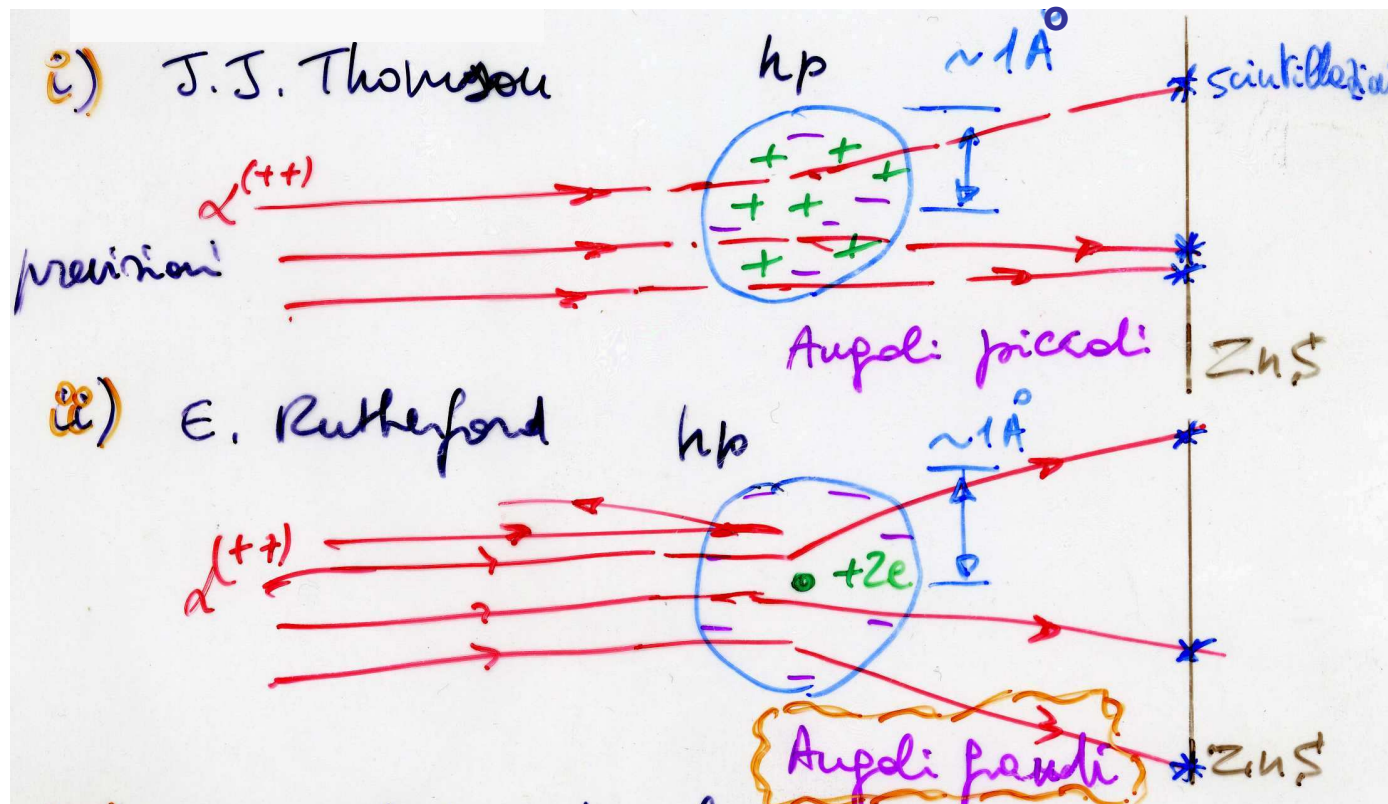 i) J.J. Thomson hp ~1Å scintillazioni
α(++)
+ + +
+ +
+ +
previsioni
Angoli piccoli
ZnS
ii) E. Rutherford hp ~1Å
α(++)
+Ze
Angoli grandi
ZnS